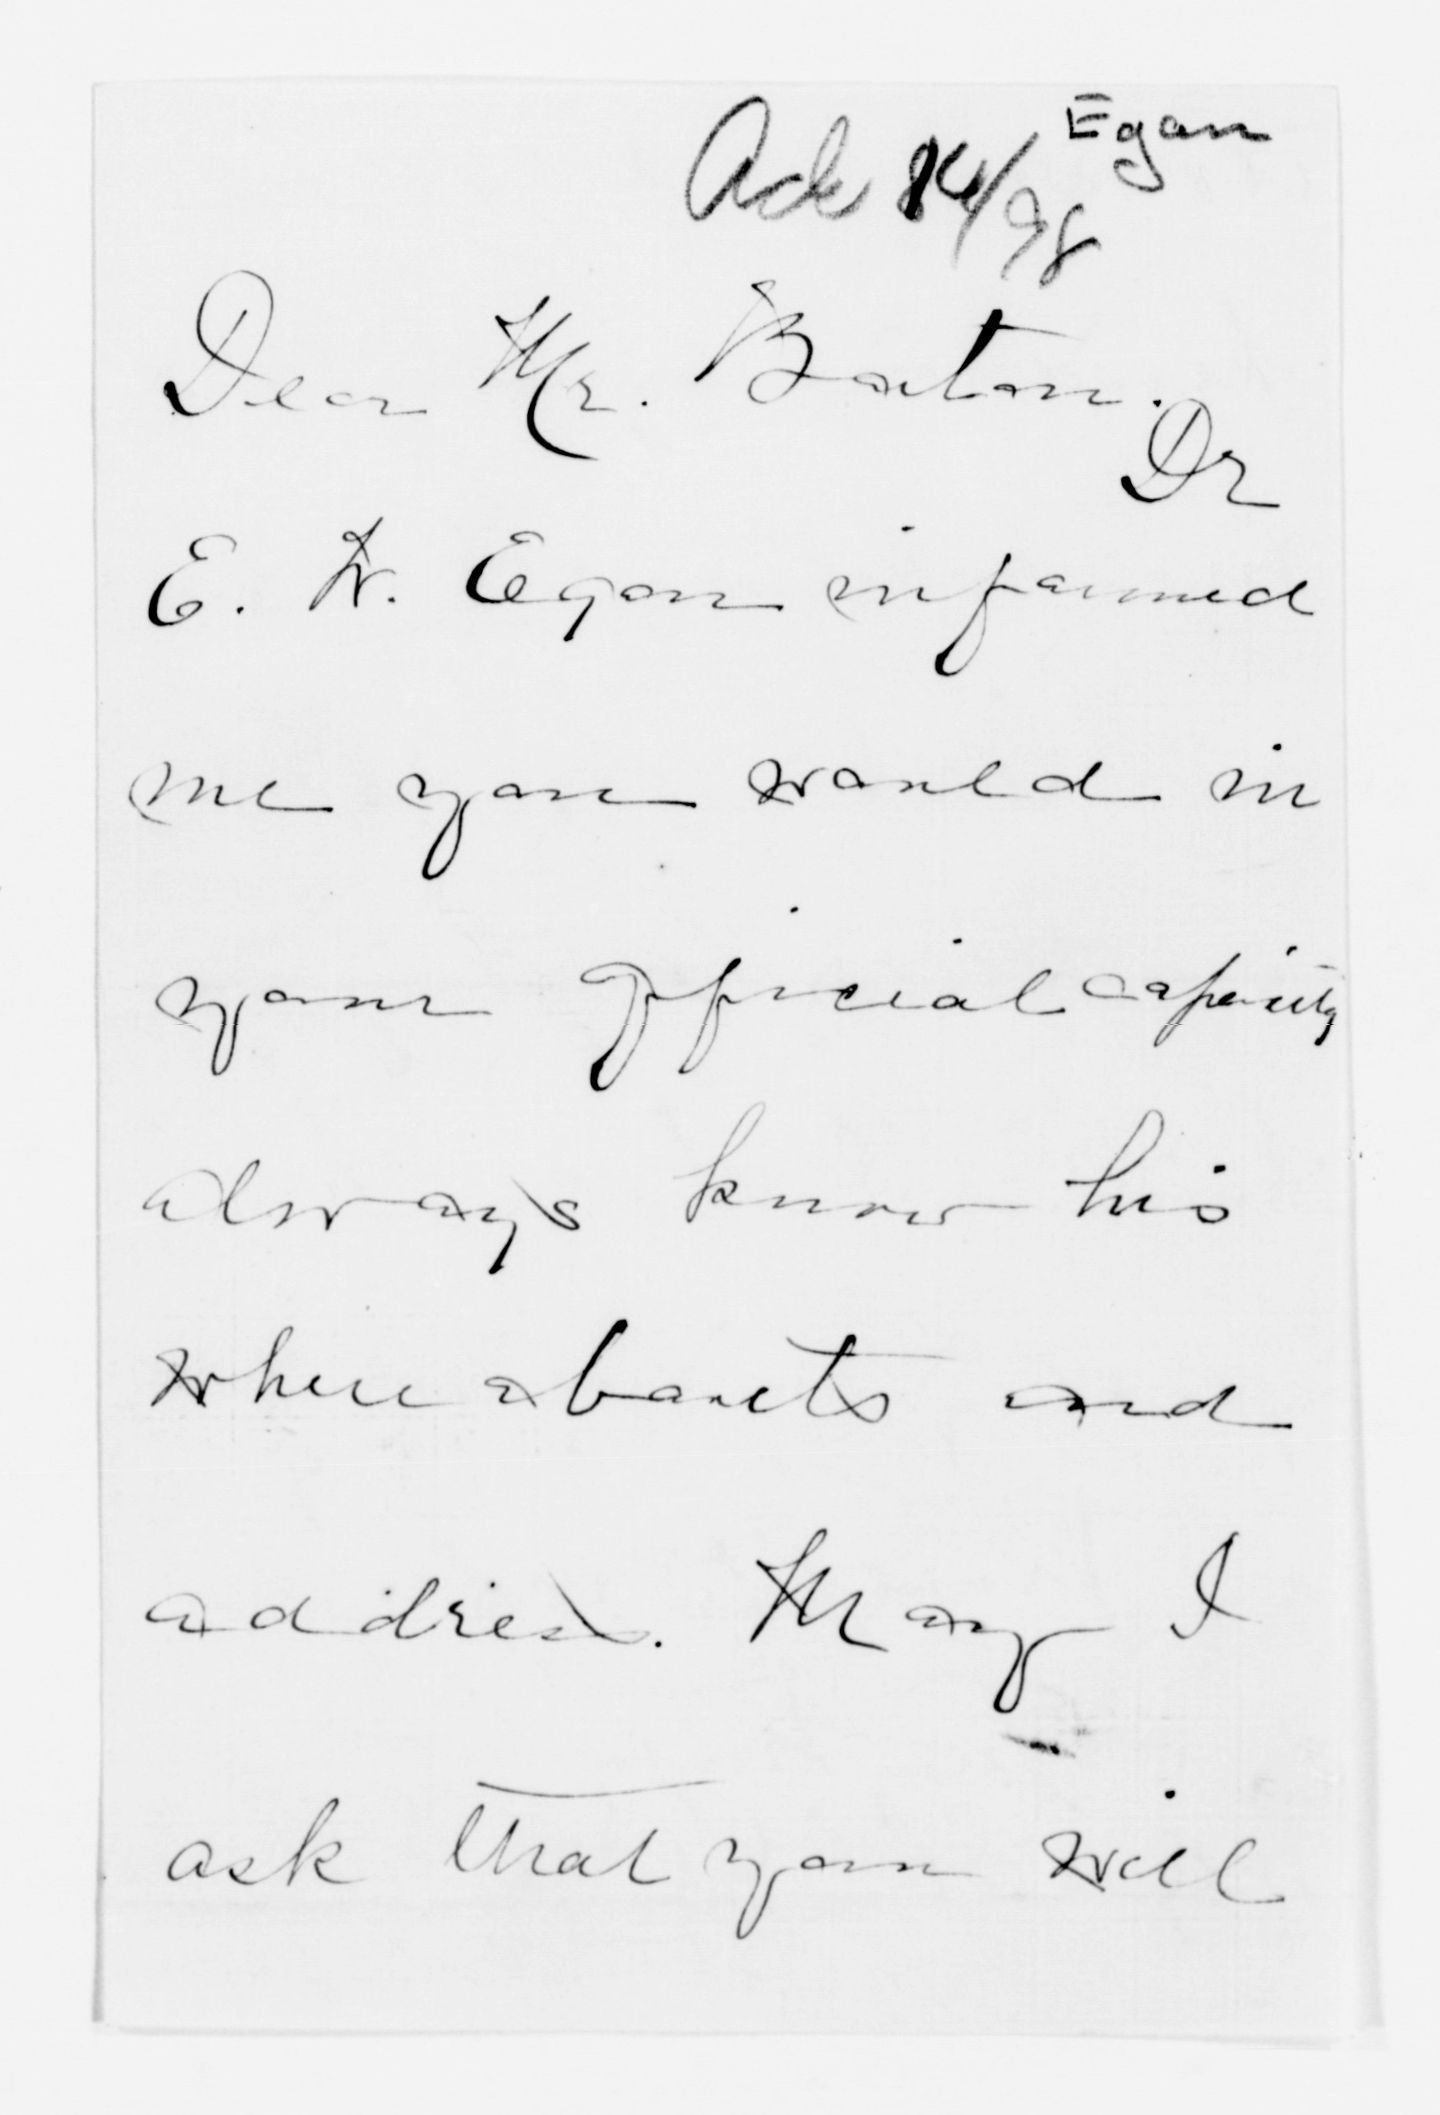 Egan
Ack 8/4/98
Dear Mr. Barton.
Dr
E. W. Egan informed
me you would in
your official capacity
always know his
where abouts and
address. May I
ask that you will